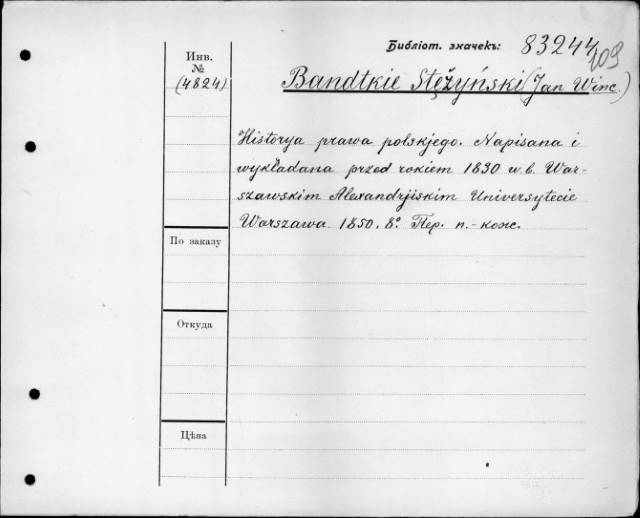 Библіот. значекъ: 83244
209
Инв.
№
(4824)
Bandtkie Stężyński (Jan Winc.)
Historya prawa polskjego. Napisana i
wykładana przed rokiem 1830 w b. War-
szawskim Alexandrjiskim Universytecie
Warszawa 1850. 8º. Пер. п.-кож.
По заказу
Откуда
Цѣна